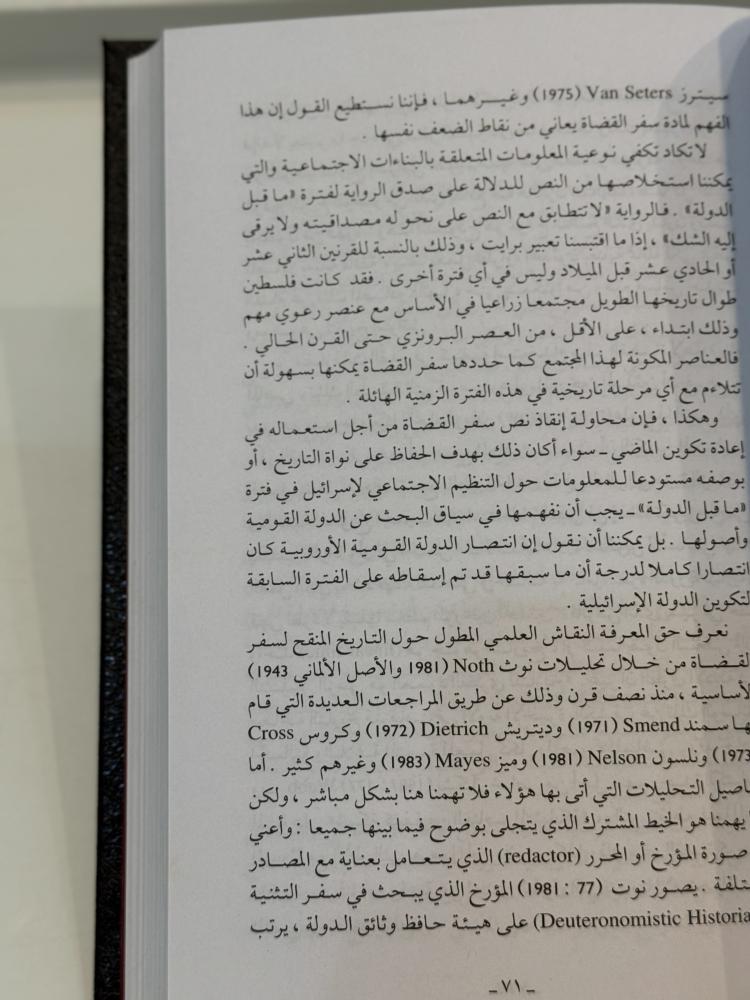 سيترز Van Seters (1975) وغيرهما ، فإننا نستطيع القول إن هذا
الفهم لمادة سفر القضاة يعاني من نقاط الضعف نفسها .
لا تكاد تكفي نوعية المعلومات المتعلقة بالبناءات الاجتماعية والتي
يمكننا استخلاصها من النص للدلالة على صدق الرواية لفترة «ما قبل
الدولة» . فالرواية «لا تتطابق مع النص على نحو له مصداقيته ولا يرقى
إليه الشك» ، إذا ما اقتبسنا تعبير برايت ، وذلك بالنسبة للقرنين الثاني عشر
أو الحادي عشر قبل الميلاد وليس في أي فترة أخرى . فقد كانت فلسطين
طوال تاريخها الطويل مجتمعا زراعيا في الأساس مع عنصر رعوي مهم
وذلك ابتداء ، على الأقل ، من العصر البرونزي حتى القرن الحالي .
فالعناصر المكونة لهذا المجتمع كما حددها سفر القضاة يمكنها بسهولة أن
تتلاءم مع أي مرحلة تاريخية في هذه الفترة الزمنية الهائلة .
وهكذا ، فإن محاولة إنقاذ نص سفر القضاة من أجل استعماله في
إعادة تكوين الماضي ــ سواء أكان ذلك بهدف الحفاظ على نواة التاريخ ، أو
بوصفه مستودعا للمعلومات حول التنظيم الاجتماعي لإسرائيل في فترة
«ما قبل الدولة» ــ يجب أن نفهمها في سياق البحث عن الدولة القومية
وأصولها . بل يمكننا أن نقول إن انتصار الدولة القومية الأوروبية كان
انتصارا كاملا لدرجة أن ما سبقها قد تم إسقاطه على الفترة السابقة
لتكوين الدولة الإسرائيلية .
نعرف حق المعرفة النقاش العلمي المطول حول التاريخ المنقح لسفر
لقضاة من خلال تحليلات نوث Noth (1981 والأصل الألماني 1943)
لأساسية ، منذ نصف قرن وذلك عن طريق المراجعات العديدة التي قام
ها سمند Smend (1971) وديتريش Dietrich (1972) وكروس Cross
1973) ونلسون Nelson (1981) وميز Mayes (1983) وغيرهم كثير . أما
اصيل التحليلات التي أتى بها هؤلاء فلا تهمنا هنا بشكل مباشر ، ولكن
يهمنا هو الخيط المشترك الذي يتجلى بوضوح فيما بينها جميعا : وأعني
صورة المؤرخ أو المحرر (redactor) الذي يتعامل بعناية مع المصادر
تلفة . يصور نوت (77 : 1981) المؤرخ الذي يبحث في سفر التثنية
(Deuteronomistic Historia على هيئة حافظ وثائق الدولة ، يرتب
ــ ٧١ ــ